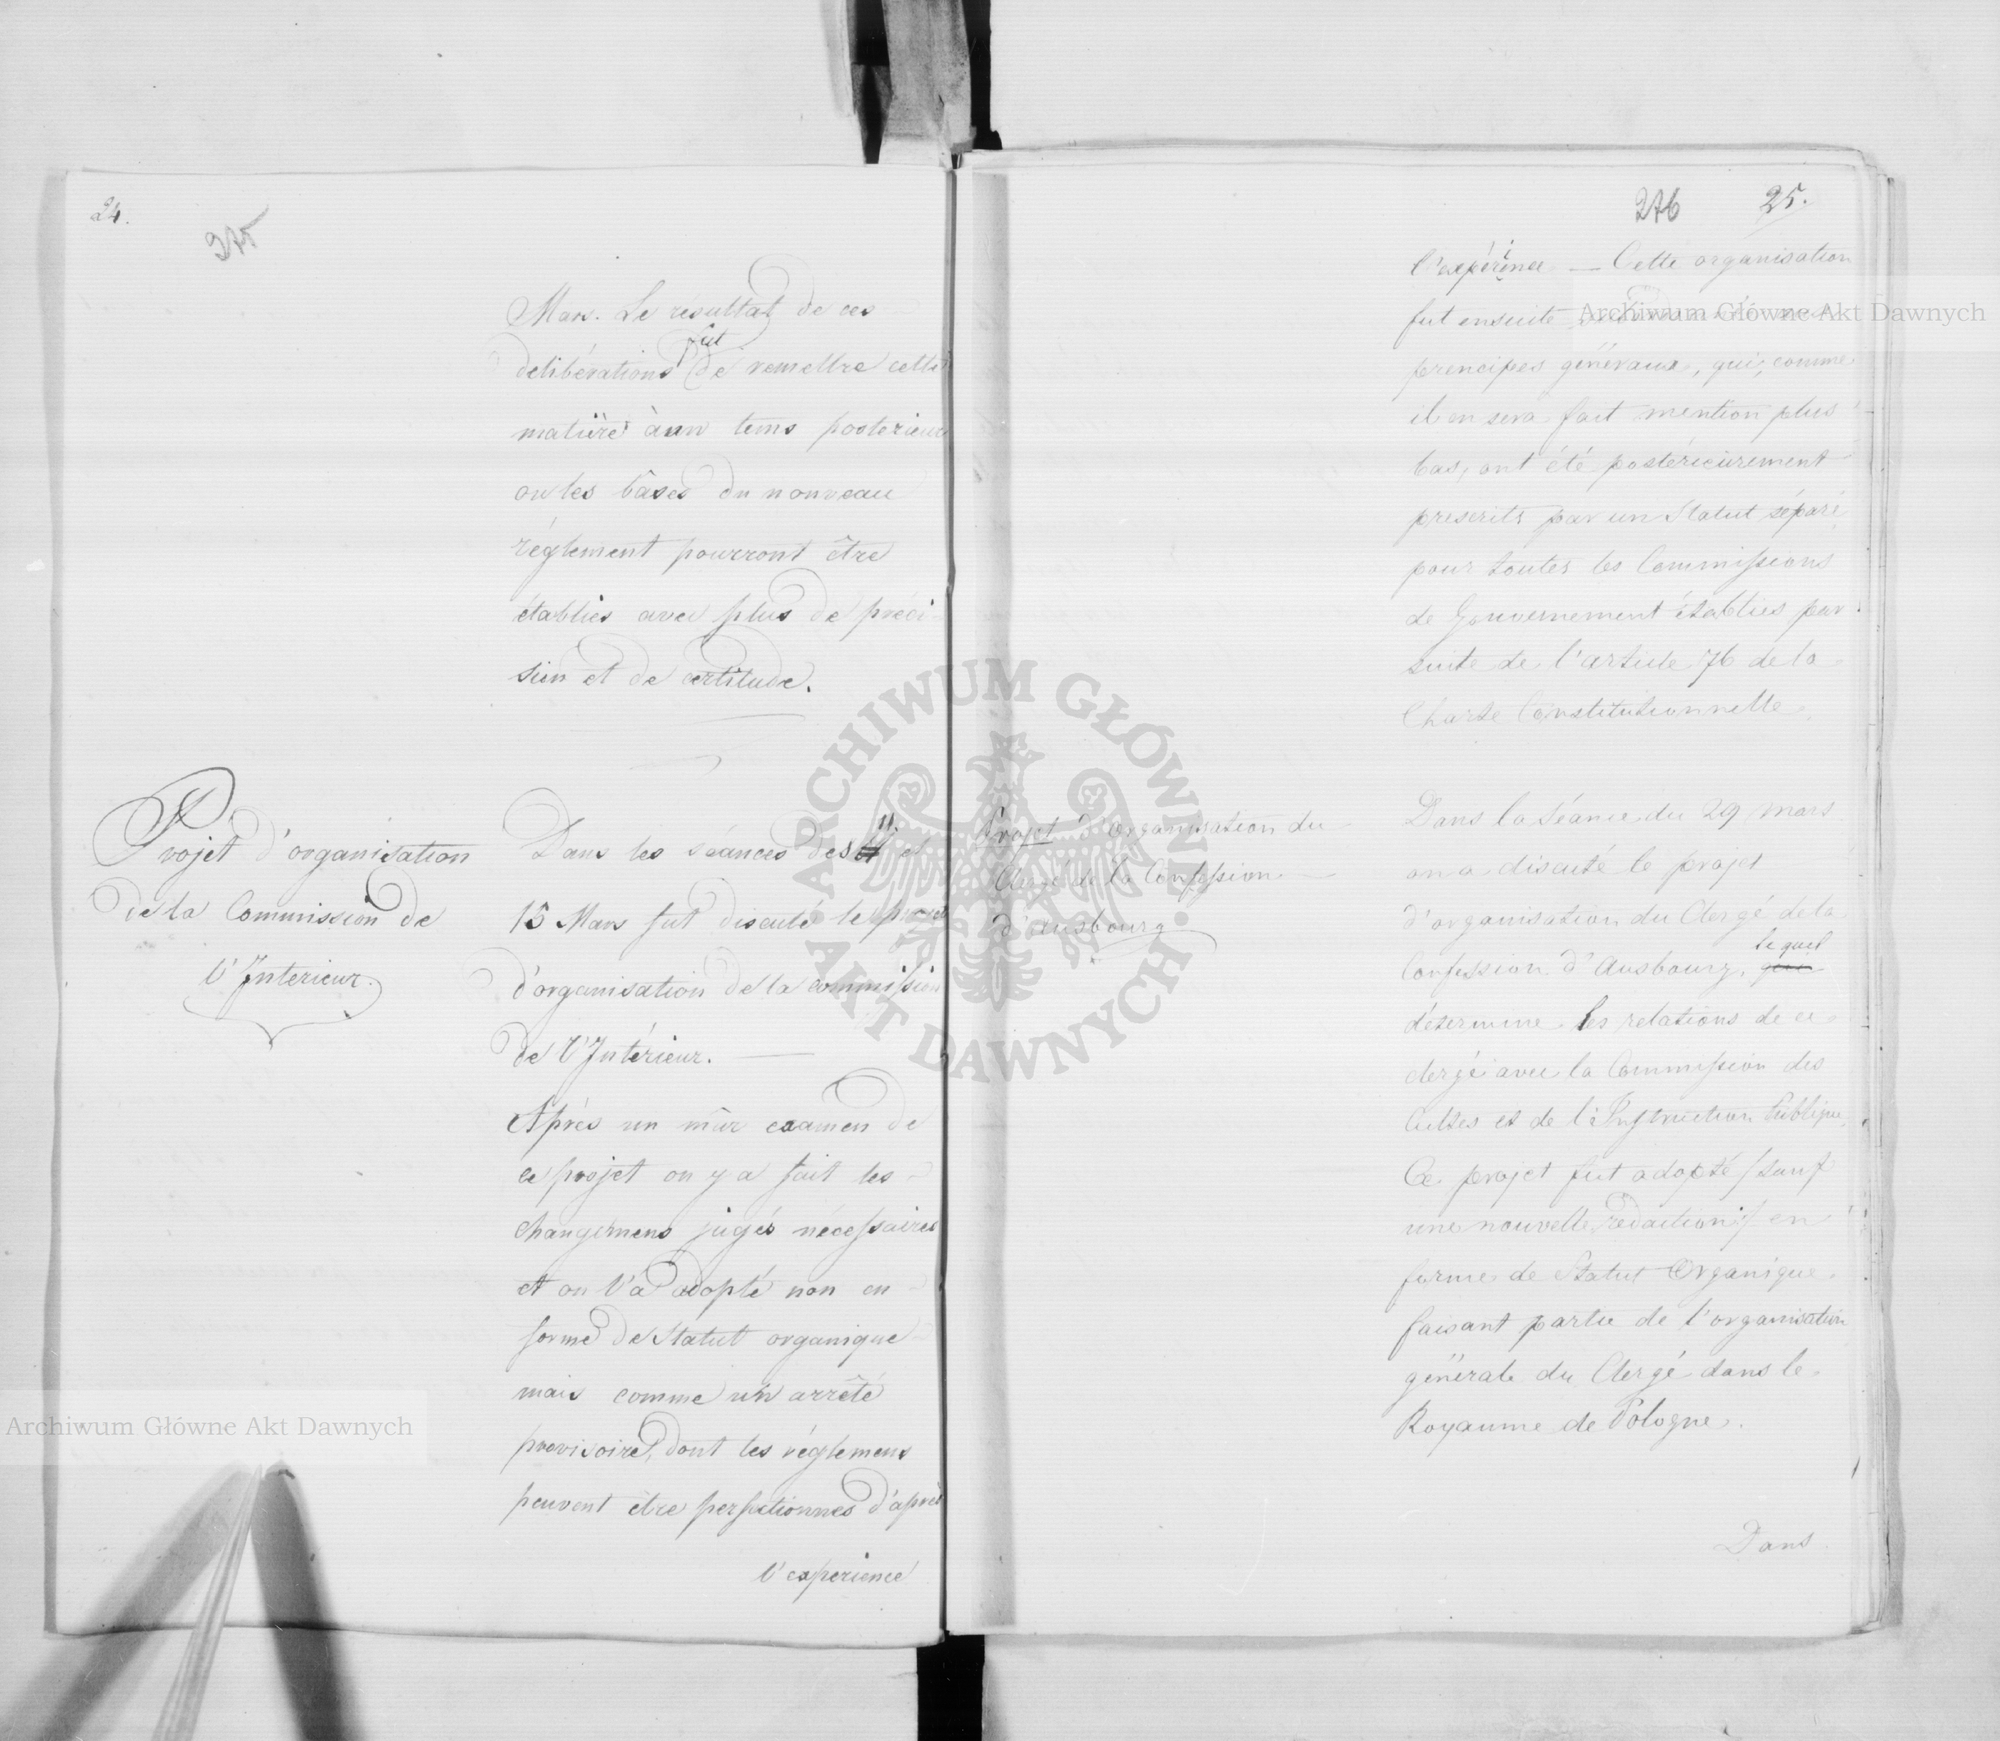 24.
375
Mars. Le résultat de ces
delibérations fut de remettre cette
matière à un tems posterieur
ou les bâses du nouveau
règlement pourront être
établies avec plus de préci-
sion et de certitude.
Projet d'organisation
de la Commission de
l'Interieur.
Dans les séances des 11. et
15 Mars fut discuté le projet
d'organisation de la commission
de l'Intérieur. —
Après un mûr examen de
ce projet on y a fait les
changemens jugés nécessaires
et on l'a adopté non en
forme de Statut organique
mais comme un arrêté
provisoire, dont les réglemens
peuvent être perfectionnés d'après
l'experience
276 25.
l'expérience — Cette organisation
fut ensuite
principes généraux, qui, comme
il en sera fait mention plus
bas, ont été postérieurement
prescrits par un Statut séparé
pour toutes les Commissions
de Gouvernement établies par
suite de l'article 76 de la
Charte Constitutionnelle.
Projet d'organisation du
Clergé de la Confession
d'Ausbourg
Dans la Séance du 29 mars
on a discuté le projet
d'organisation du Clergé de la
Confession d'Ausbourg, lequel
détermine les relations de ce
clergé avec la Commission des
Cultes et de l'Instruction Publique.
Ce projet fut adopté /sauf
une nouvelle rédaction/ en
forme de Statut Organique
faisant partie de l'organisation
générale du Clergé dans le
Royaume de Pologne.
Dans
Archiwum Główne Akt Dawnych
Archiwum Główne Akt Dawnych
ARCHIWUM GŁÓWNE AKT DAWNYCH